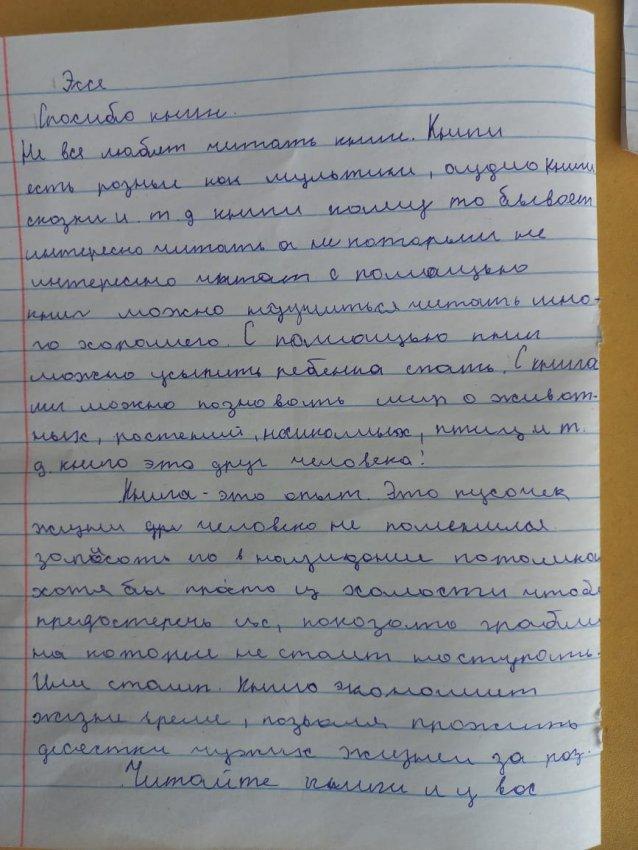 Эссе
Спосибо книги.
Не все любят читать книги. Книги
есть розные как мультики, аудио книги
сказки и т. д книги кому то бывает
интересно читать а не которым не
интересно читат с помащью
книг можно научиться читать мно-
го хорошего. С помащью книг
можно усыпить ребенка спать. С книга
ми можно позновать мир о живот-
ных, ростений, насикомых, птиц и т.
д книго это друг человека!
Книга - это опыт. Это кусочек
жизни человеко не поленился
записать го в назидание потомка
хотя бы просто из жалости чтобы
предостеречь ис, показать грабли
на которые не стоит наступать.
Или стоит. Книго экономит
жизни время, позволя прожить
десестки чужих жизней за роз.
Читайте книги и у вос